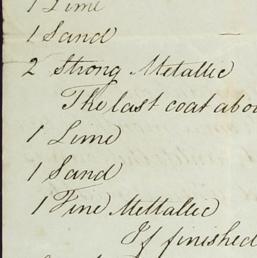 1 Lime
1 Sand
2 Strong Metallic
The last coat abo
1 Lime
1 Sand
1 Fine Mettallic
If finished